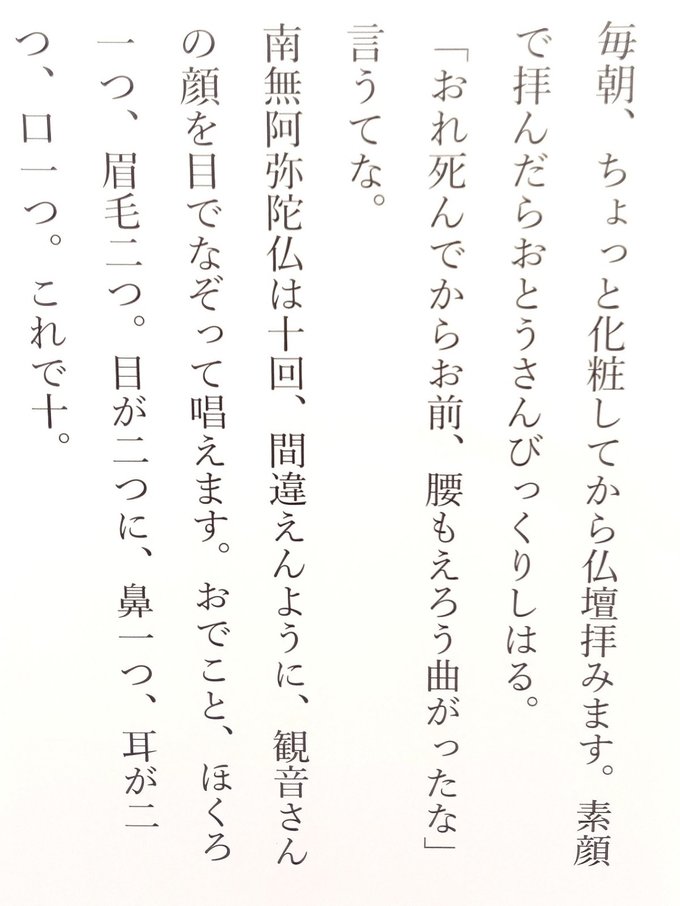 毎朝、ちょっと化粧してから仏壇拝みます。素顔
で拝んだらおとうさんびっくりしはる。
「おれ死んでからお前、腰もえろう曲がったな」
言うてな。
南無阿弥陀仏は十回、間違えんように、観音さん
の顔を目でなぞって唱えます。おでこと、ほくろ
一つ、眉毛二つ。目が二つに、鼻一つ、耳が二
つ、口一つ。これで十。